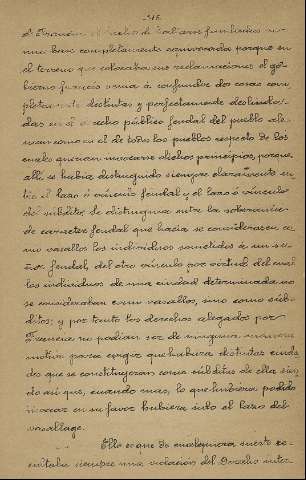 -515-
una base completamente equivocada porque en
el terreno que colocaba sus reclamaciones el go-
bierno francés venia á confundir dos cosas com-
pletamente distintas y perfectamente deslinda-
das en el derecho público feudal del pueblo ale-
man como en el de todos los pueblos respecto de los
cuales quieran invocarse dichos principios, porque
allí se había distinguido siempre claramente en-
tre el lazo ó vínculo feudal y el lazo ó vínculo
del súbdito; se distinguía entre la soberanía
de carácter feudal que hacía se considerasen co-
mo vasallos los individuos sometidos á un se-
ñor feudal, del otro vínculo por virtud del cual
los individuos de una ciudad determinada no
se consideraban como vasallos, sino como súb-
ditos; y por tanto los derechos alegados por
Francia no podían ser de ninguna manera
motivo para exigir que hubiera distintas ciuda-
des que se constituyeran como súbditas de ella sien-
do así que, cuando mas, lo que hubiera podido
invocar en su favor hubiera sido el lazo del
vasallage.
Ello es que de cualquiera suerte re-
sultaba siempre una violacion del Derecho inter-